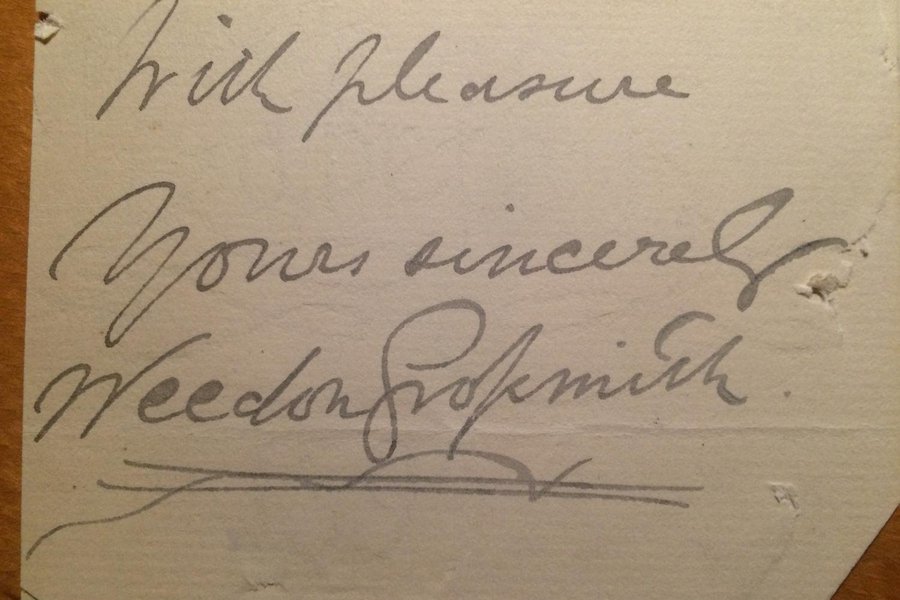 With pleasure
Yours sincerely
Weedon Grossmith.